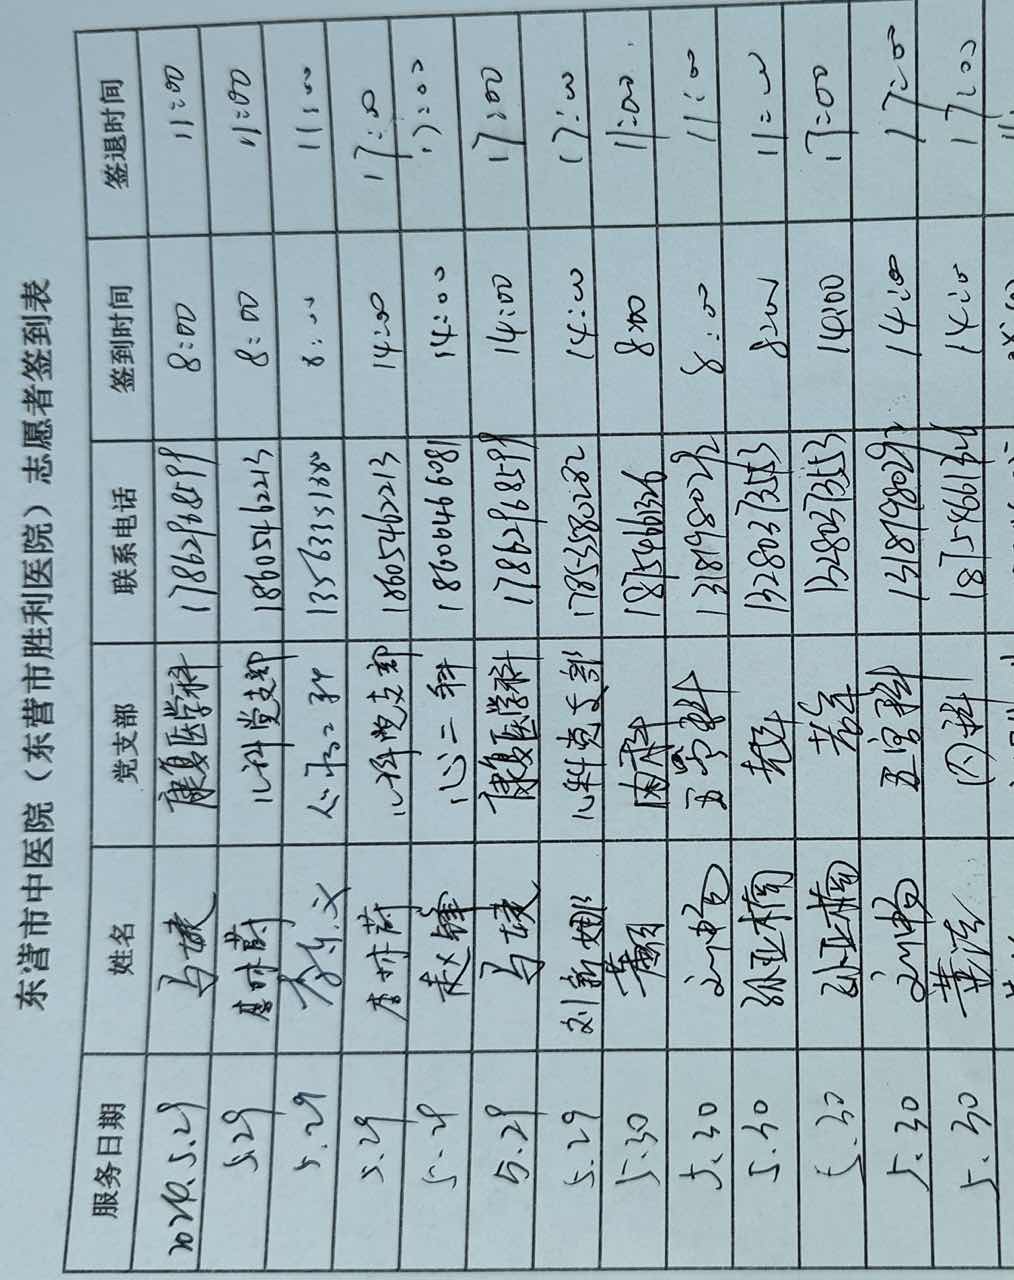 东营市中医院（东营市胜利医院）志愿者签到表
服务日期 姓名 党支部 联系电话 签到时间 签退时间
2024.5.29 马婕 康复医学科 17862968599 8:00 11:00
5.29 儿科党支部 18605462213 8:00 11:00
5.29 13563351380 8:00 11:00
5.29 儿科党支部 18605462213 14:00 17:00
5.29 赵锋 心二科 18606466081 14:00 17:00
5.29 马婕 康复医学科 17862968599 14:00 17:00
5.29 刘新娜 儿科党支部 17853580282 14:00 17:00
5.30 内科 8:00 11:00
5.30 五官科 13181980292 8:00 11:00
5.30 孙亚楠 13280373553 8:00 11:00
5.30 孙亚楠 13280373553 14:00 17:00
5.30 五官科 13181980292 14:00 17:00
5.30 内科 14:00 17:00